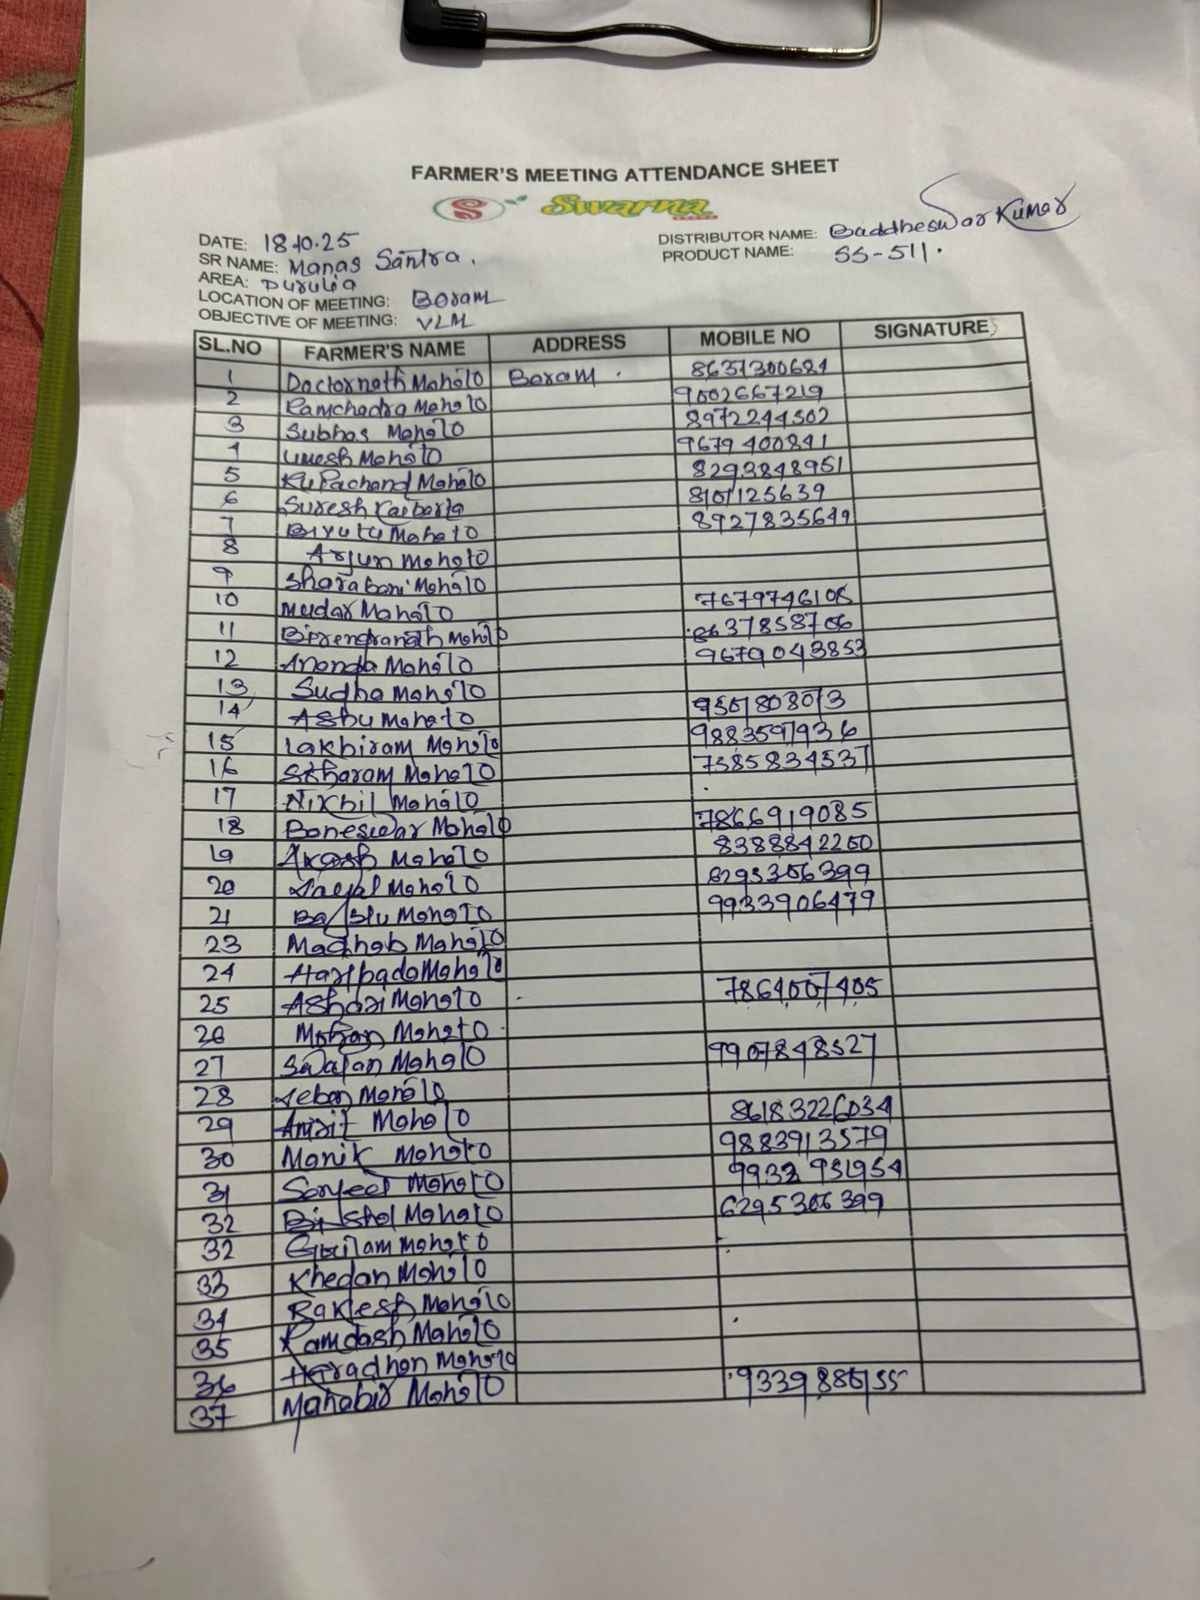 FARMER'S MEETING ATTENDANCE SHEET
S Swarna
DATE: 18.10.25
DISTRIBUTOR NAME: Baddheswar Kumar
SR NAME: Manas Santra.
PRODUCT NAME: SS-511.
AREA: Purulia
LOCATION OF MEETING: Boram
OBJECTIVE OF MEETING: VLM
SL.NO FARMER'S NAME ADDRESS MOBILE NO SIGNATURE
1 Doctornath Mahato Boram. 8637300684
2 Ramchadra Mahato 9002667219
3 Subhas Mahato 8972244502
4 Umesh Mahato 9679400841
5 Kripachand Mahato 8293848951
6 Suresh Kaibarta 8101125639
7 Biyutu Mahato 8927835649
8 Arjun Mahato
9 Sharabani Mahato
10 Mudar Mahato 7679746108
11 Birendranath Mahato 8637858706
12 Ananda Mahato 9679043853
13 Sudha Mahato
14 Ashu Mahato
15 Lakhiram Mahato 9883597936
16 Mahato 7585834537
17 Nikhil Mahato
18 Baneswar Mahato 7866919085
19 Akash Mahato 8388842260
20 Mahato 8295306399
21 Mahato 9933906479
23 Madhab Mahato
24 Haripada Mahato
25 Mahato 7864007405
26 Mohan Mahato
27 Swapan Mahato 9907848527
28 Jeban Mahato
29 Amrit Mahato 86183226034
30 Manik Mahato 9883913579
31 Sanjeet Mahato
32 Mahato 6295306399
32 Mahato
33 Khedan Mahato
34 Rakesh Mahato
35 Ramdash Mahato
36 Haradhan Mahato
37 Mahabir Mahato 9339886155